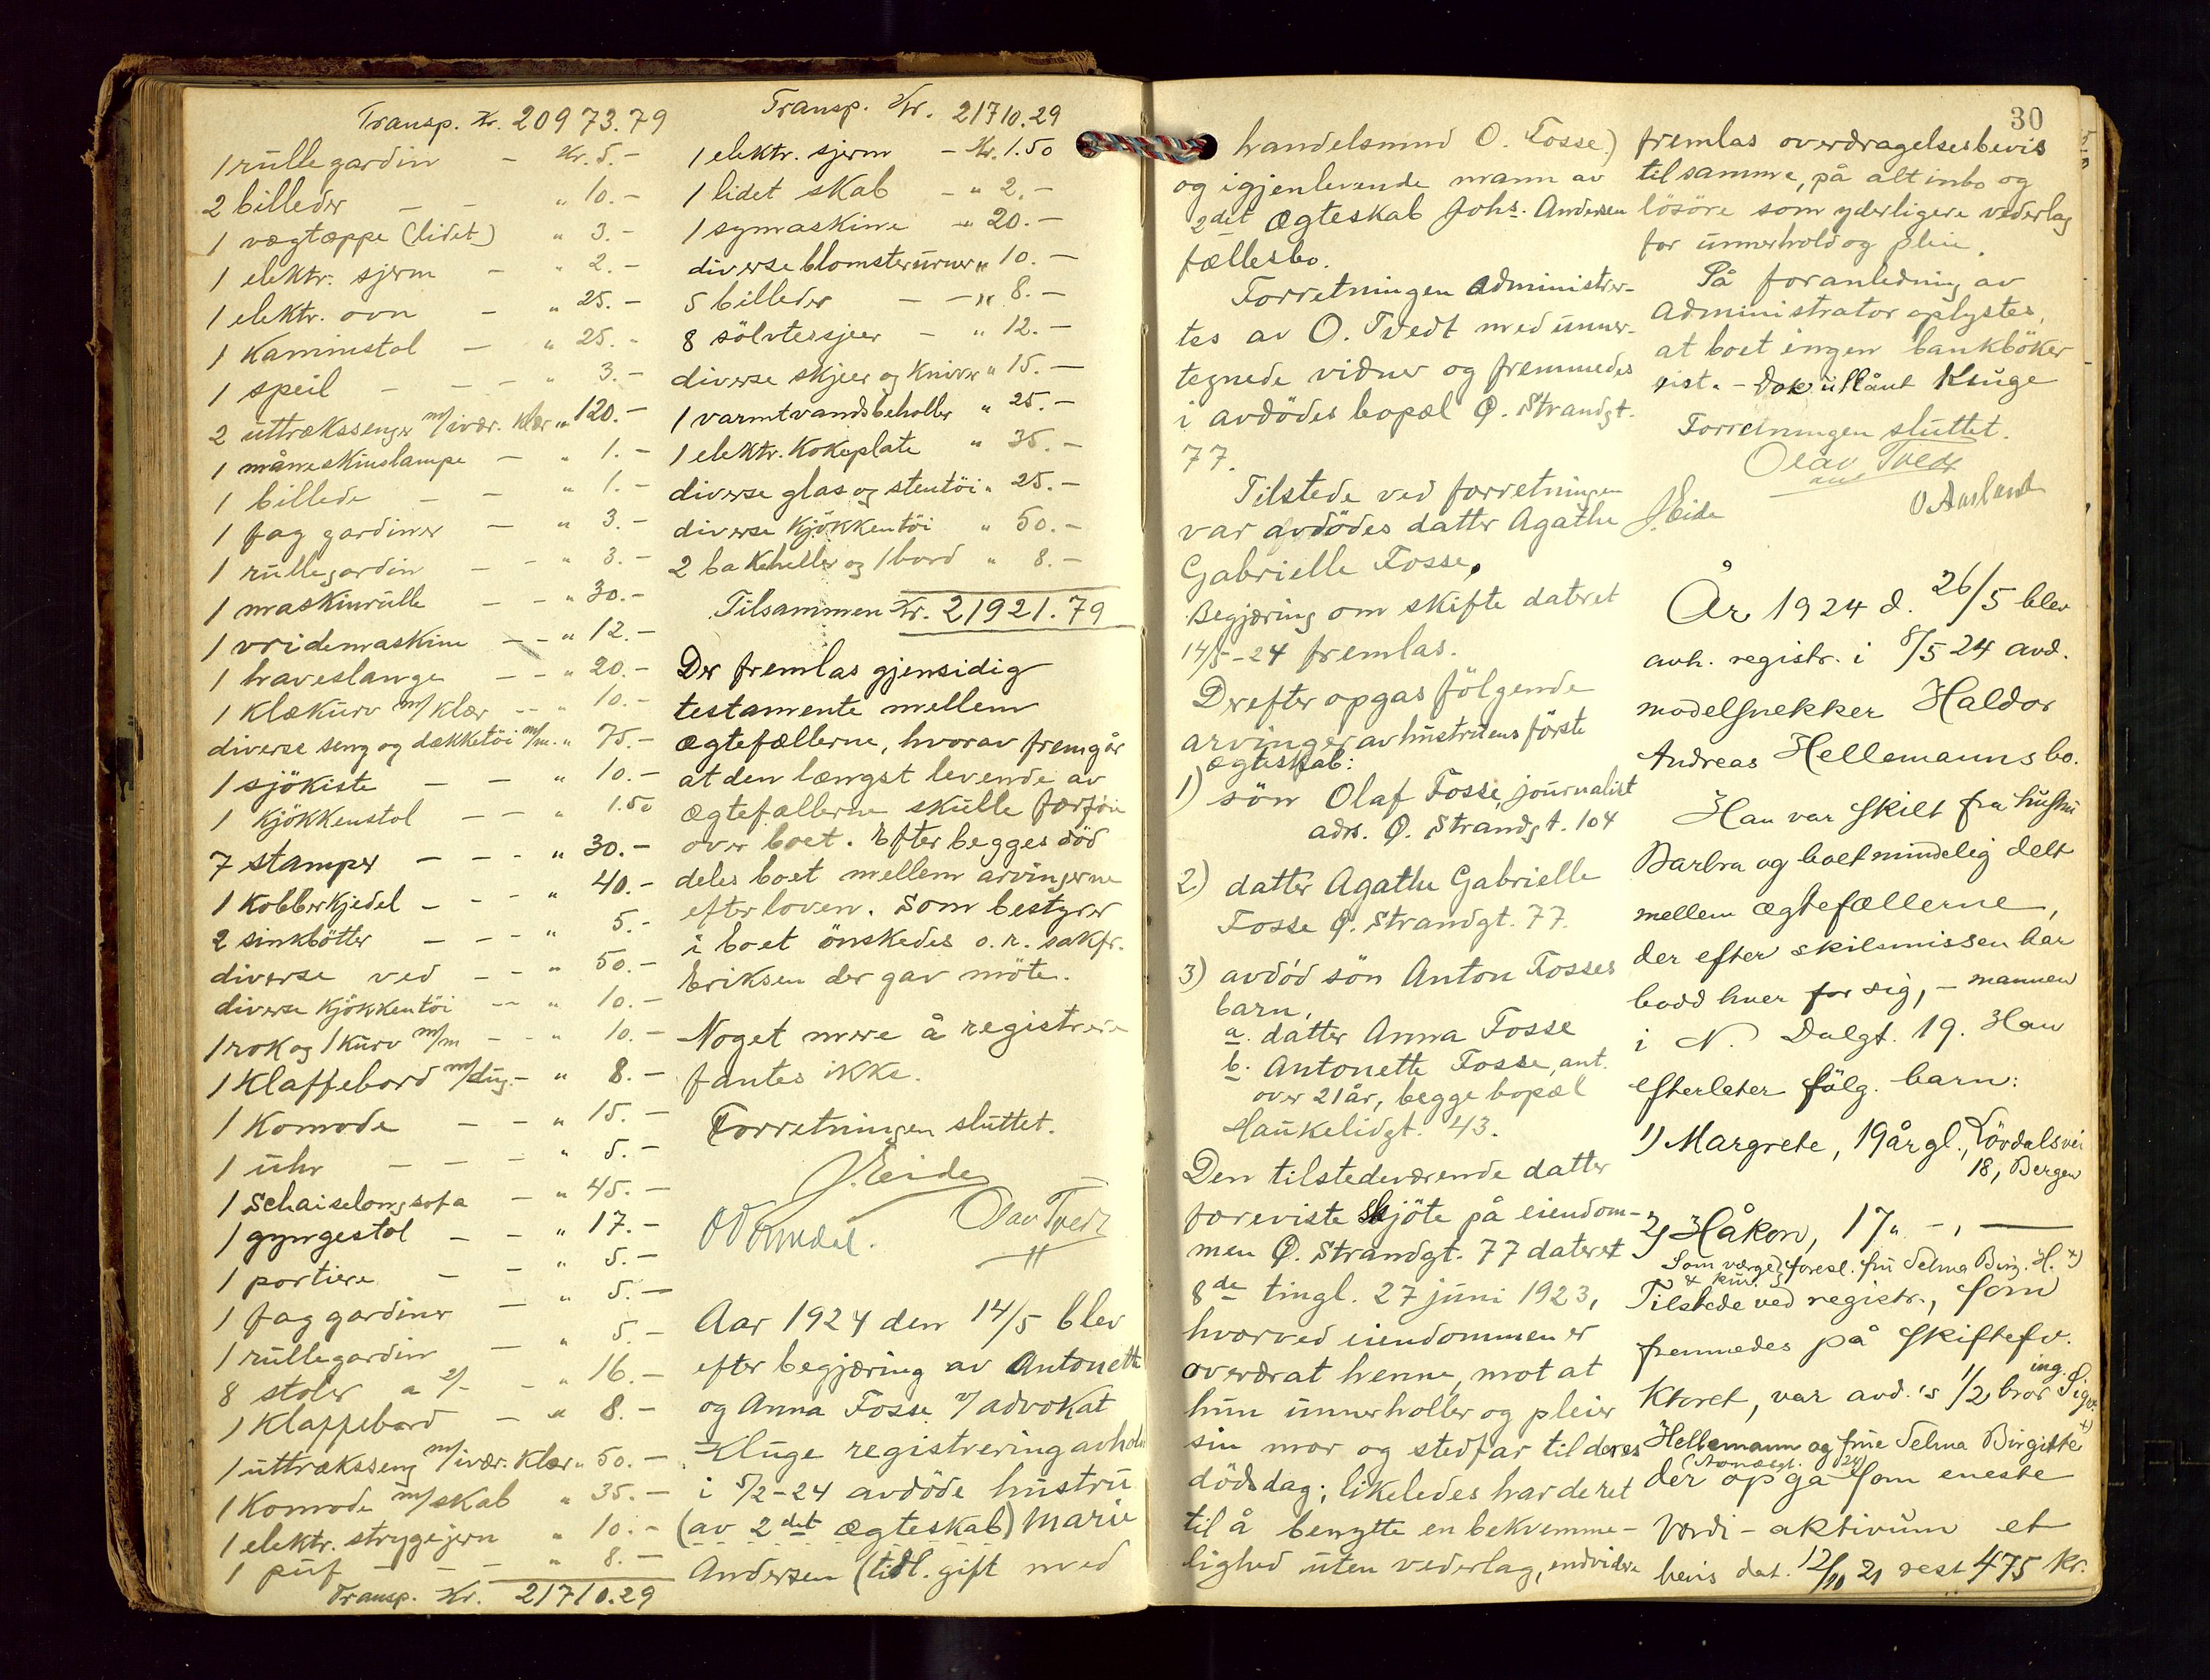 Transp. Kr. 20973.79
1 rullegardin - Kr. 5.-
2 billeder - - " 10.-
1 vægtæppe (lidet) " 3.-
1 elektr. sjerm - " 2.-
1 elektr. ovn - " 25.-
1 Kaminstol - " 25.-
1 speil - - - " 3.-
2 uttrækssenger m/ivær. klær " 120.-
1 måneskinslampe - " 1.-
1 billede - - " 1.-
1 fag gardiner - " 3.-
1 rullegardin - - " 3.-
1 maskinrulle - - " 30.-
1 vridemaskine - - " 12.-
1 haveslange - - " 20.-
1 klækurv m/klær - - " 10.-
diverse seng og dækketöi m/m. " 75.-
1 sjökiste - - " 10.-
1 kjökkenstol - - " 1.50
7 stamper - - - " 30.-
1 Kobberkjedel - - - " 40.-
2 sinkbötter - - - " 5.-
diverse ved - - " 50.-
diverse kjökkentöi - - " 10.-
1 rok og 1 kurv m/m - - " 10.-
1 Klaffebord m/dug. - " 8.-
1 Komode - - " 15.-
1 uhr - - - " 5.-
1 schaiselongsofa - " 45.-
1 gyngestol - - " 17.-
1 portiere - - " 5.-
1 fag gardiner - " 5.-
1 rullegardin - " 5.-
8 stoler a 2/- - " 16.-
1 Klappebord - " 8.-
1 uttræksseng m/ivær. klær " 50.-
1 Komode m/skab " 35.-
1 elektr. strygejern " 10.-
1 puf - - - " 8.-
Transp. Kr. 21710.29
Transp. Kr. 21710.29
1 elektr. sjerm - Kr. 1.50
1 lidet skab - " 2.-
1 symaskine - " 20.-
diverse blomsterurner " 10.-
5 billeder - - " 8.-
8 sölvtesjeer - " 12.-
diverse skjeer og kniver " 15.-
1 varmtvandsbeholler " 25.-
1 elektr. kokeplate " 35.-
diverse glas og stentöi " 25.-
diverse kjökkentöi " 50.-
2 bakeheller og 1 bord " 8.-
Tilsammen Kr. 21921.79
Der fremlas gjensidig
testamente mellem
ægtefællerne, hvorav fremgår
at den længst levende av
ægtefællerne skulle forföie
over boet. Efter begges död
deles boet mellem arvingerne
efter loven. Som bestyrer
i boet önskedes o.r. sakfr.
Eriksen der gav möte.
Noget mere å registrere
fantes ikke.
Forretningen sluttet.
J. Eide
Olav Tvedt
Aar 1924 den 14/5 blev
efter begjæring av Antonette
og Anna Fosse v/ advokat
Kluge registrering avholdt
i 5/2-24 avdöde hustru
(av 2det ægteskab) Marie
Andersen (tidl. gift med
30
handelsmnd O. Fosse)
og igjenlevende mann av
2det ægteskab Johs. Andersen
fællesbo.
Forretningen administrer-
tes av O. Tvedt med unner-
tegnede vidner og fremmedes
i avdödes bopæl Ø. Strandgt.
77.
Tilstede ved forretningen
var avdödes datter Agathe
Gabrielle Fosse.
Begjæring om skifte dateret
14/5-24 fremlas.
Derefter opgas fölgende
arvinger av hustruens förste
ægteskab:
1) sön Olaf Fosse, journalist
adrs. Ø. Strandgt. 104
2) datter Agathe Gabrielle
Fosse Ø. Strandgt. 77.
3) avdöd sön Anton Fosses
barn,
a. datter Anna Fosse
b. Antonette Fosse, ant.
over 21 år, begge bopæl
Haukelidgt. 43.
Den tilstedeværende datter
foreviste skjöte på eiendom-
men Ø. Strandgt. 77 dateret
8de tingl. 27 juni 1923,
hvorved eiendommen er
overdrat henne, mot at
hun unnerholler og pleier
sin mor og stedfar til deres
dödsdag; likeledes har de ret
til å benytte en bekvemme-
lighed uten vederlag, endvidere
fremlas overdragelsesbevis
til samme, på alt inbo og
lösöre som yderligere vederlag
for unnerhold og pleie.
På foranledning av
administrator oplystes,
at boet ingen bankböker
eist. - Dok. utlånt Kluge
Forretningen sluttet.
Olav Tvedt
J. Eide
År 1924 d. 26/5 blev
avh. registr. i 8/5 24 avd.
modelsnekker Haldor
Andreas Hellemanns bo.
Han var skilt fra hustru
Barbra og boet mindelig delt
mellem ægtefællerne,
der efter skilsmissen har
bodd hver for sig, - mannen
i N. Dalgt. 19. Han
efterlater fölg. barn:
1) Margrete, 19 år gl., Lövdalsvei
18, Bergen
2) Håkon, 17 " - , -
Som værge foresl. fru Selma Birg. H. x)
& kur.
Tilstede ved registr., som
fremmedes på skiftefv.
ktoret, var avd.'s 1/2 bror ing. Sigv.
Hellemann og frue Selma Birgitte x)
der opga som eneste
værdi-aktivum et
bevis dat. 12/10 21 rest 475 kr.